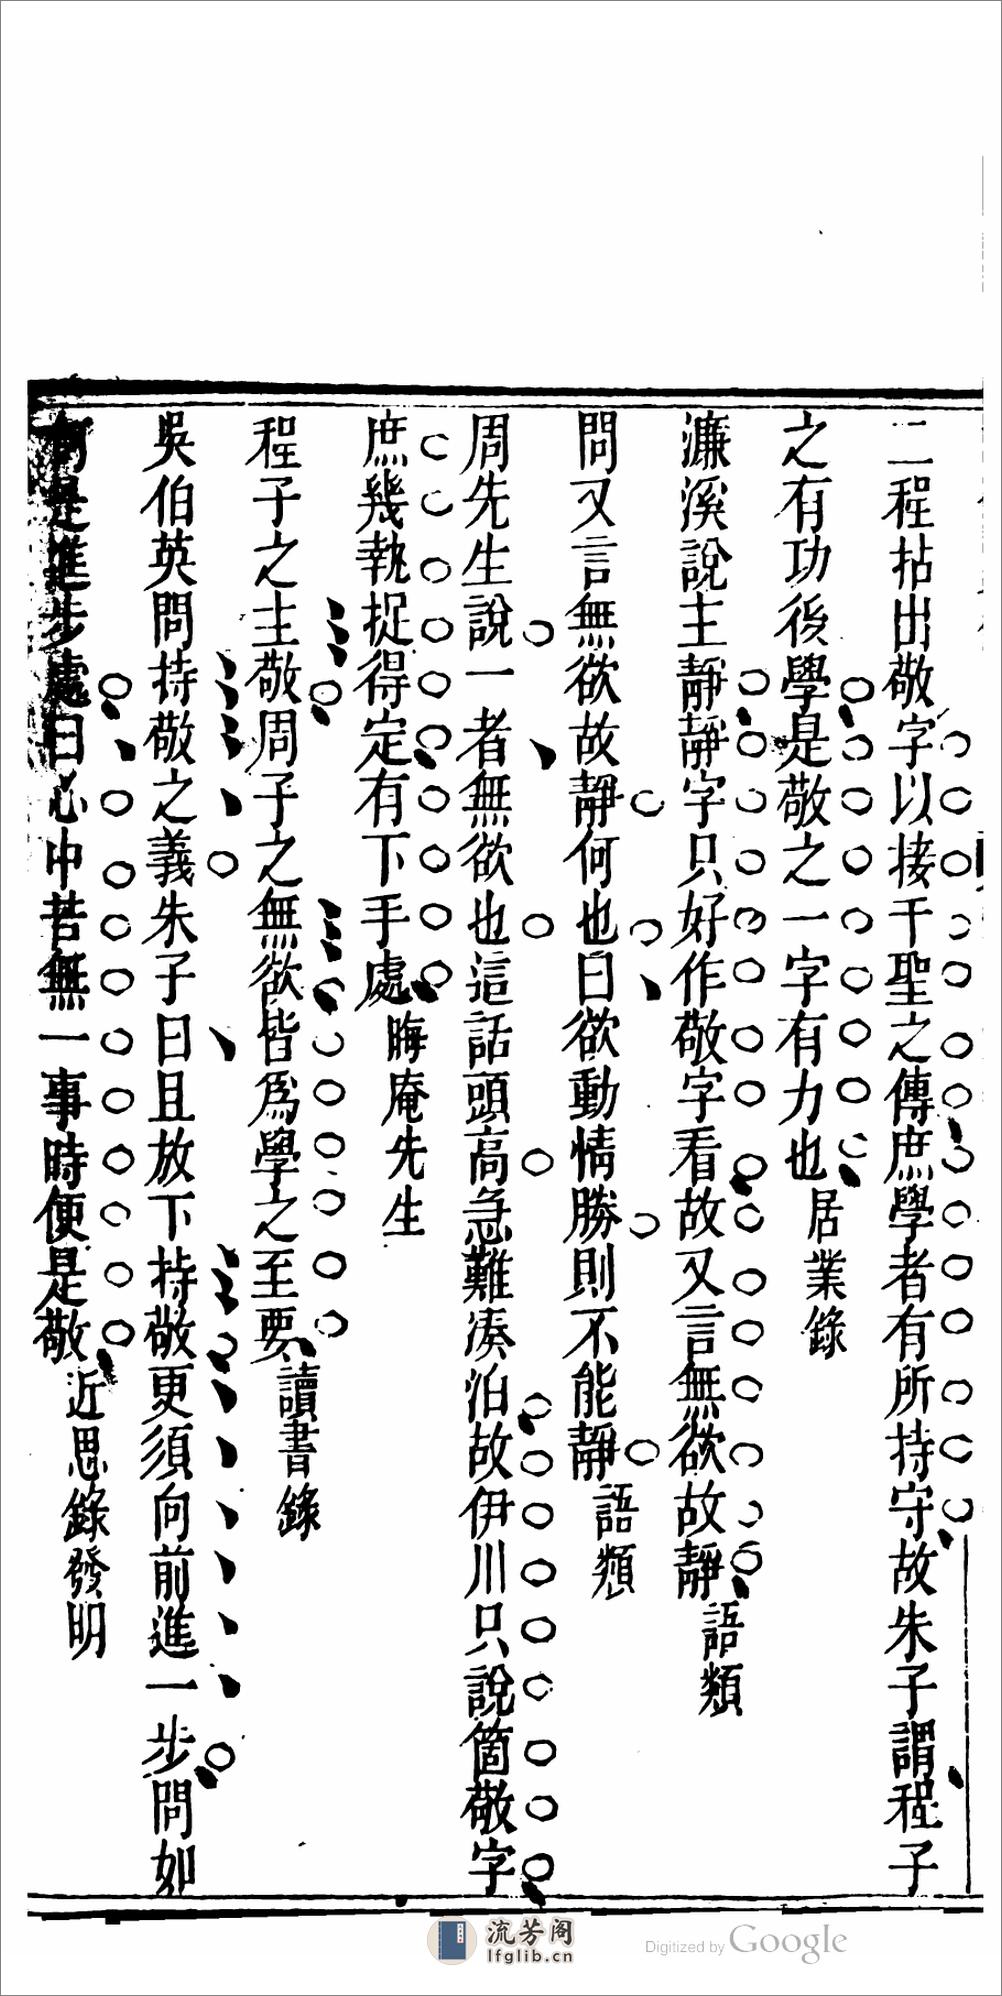 二程拈出敬字以接千聖之傳庶學者有所持守故朱子謂程子
之有功後學是敬之一字有力也居業錄
濂溪說主靜靜字只好作敬字看故又言無欲故靜語類
問又言無欲故靜何也曰欲動情勝則不能靜語類
周先生說一者無欲也這話頭高急難凑泊故伊川只說箇敬字
庶幾執捉得定有下手處晦庵先生
程子之主敬周子之無欲皆爲學之至要讀書錄
吳伯英問持敬之義朱子曰且放下持敬更須向前進一步問如
何是進步處曰心中若無一事時便是敬近思錄發明
流芳阁
lfglib.cn
Digitized by Google